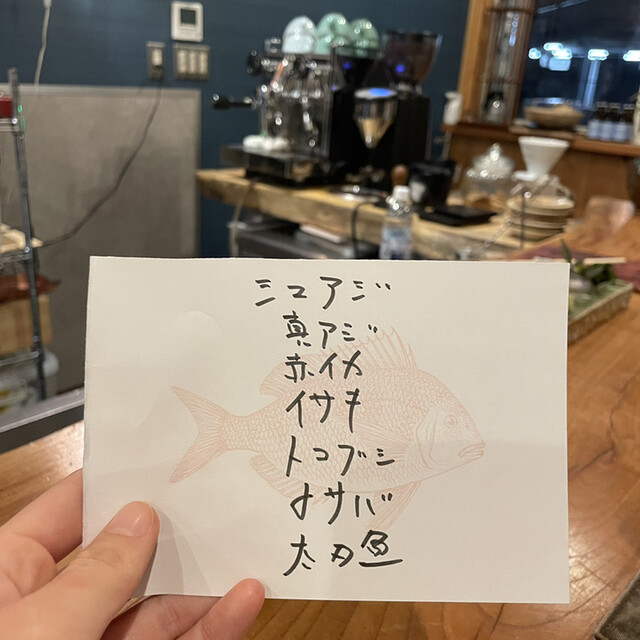 シマアジ
真アジ
赤イカ
イサキ
トコブシ
オサバ
太刀魚